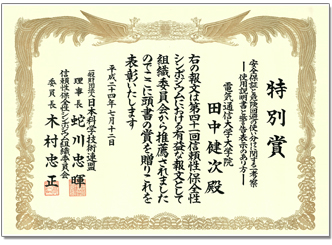 特別賞
安全保証と危険回避の使い分に関する一考察
―使用説明書と警告表示のあり方―
電気通信大学大学院
田中健次殿
右の報文は第四十二回信頼性・保全性
シンポジウムにおける有益な報文として
組織委員会から推薦されました
のでここに頭書の賞を贈りこれを
表彰いたします
平成二十四年七月十二日
一般財団法人日本科学技術連盟
理事長 蛇川忠暉
信頼性・保全性シンポジウム組織委員会
委員長 木村忠正